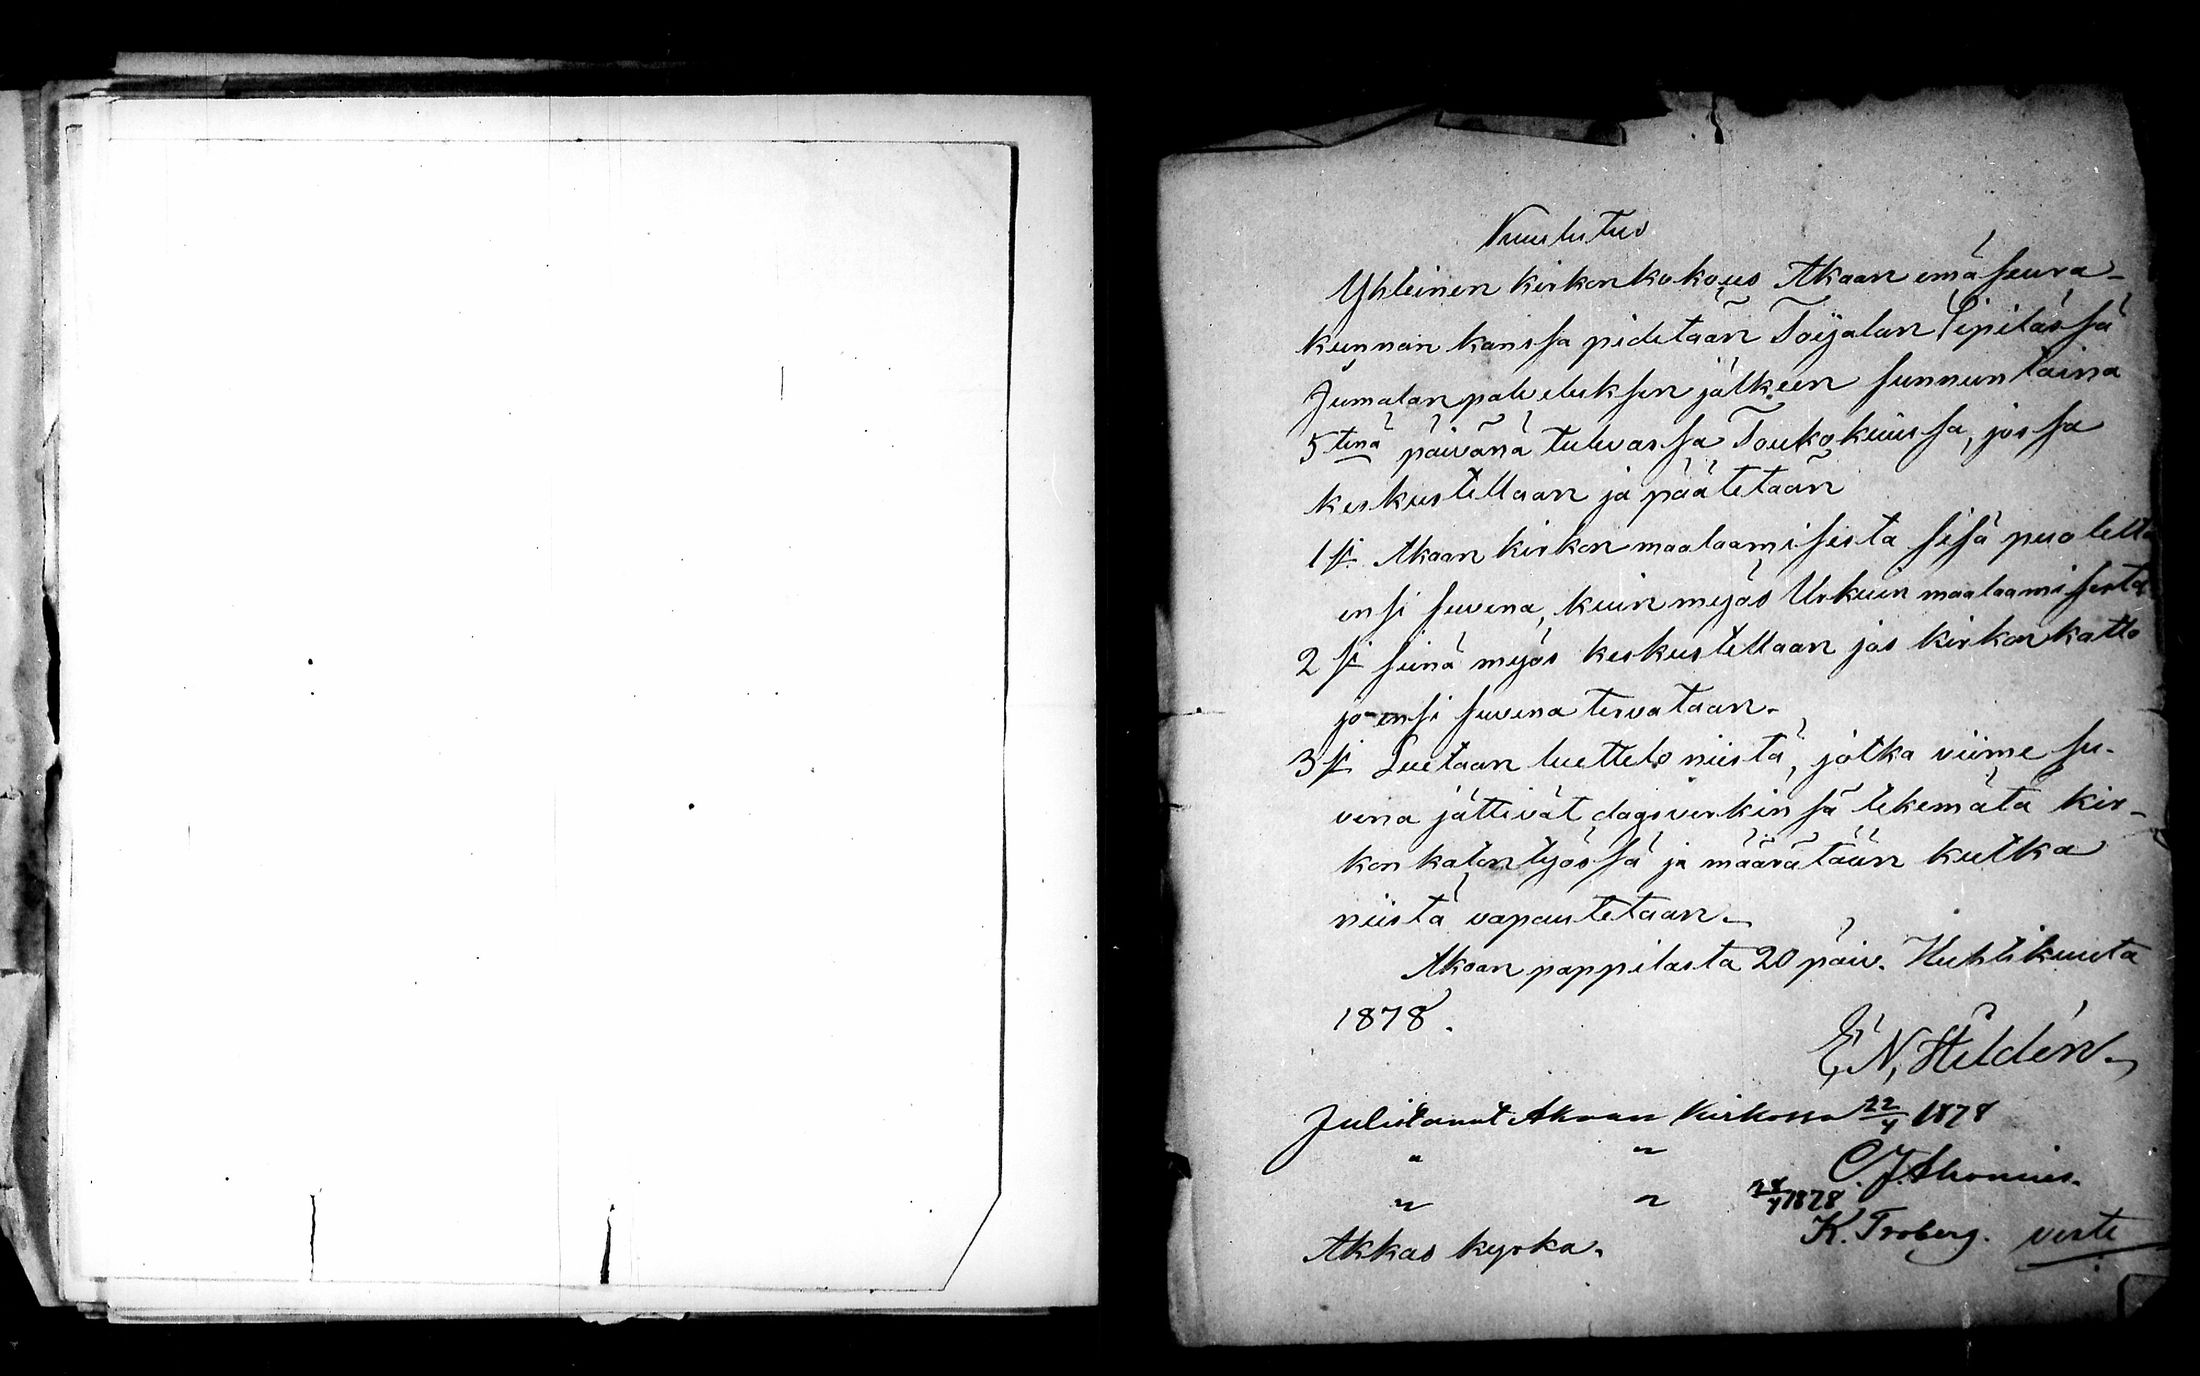 Kuulutus
Yhteinen kirkonkokous Akaan emäseura-
kunnan kanssa pidetään Toijalan Sipilässä
Jumalanpaluelukjen jälkeen sunnuntaina
5tenä päivänä tulevassa Toukokuussa, jossa
keskustellaan ja päätetään
1si Akaan kirkon maalaamisesta sisä puolelta
ensi suvena, kuin myös Urkuin maalaamisesta
2si siinä myös keskustellaan jos kirkon katto
jo ensi suvena tervataan.
3si Luetaan luettelo niistä, jotka viime su-
vena jättivät dagsverkinsä tekemätä kir-
kon katon työssä ja määrätään kutka
niistä vapautetaan.
Akaan pappilasta 20 päiv. Huhtikuuta
1878.
E. N. Hildén.
Julistanut Akaan Kirkossa 22/4 1878
" " C. J. Ahonius.
" " 28/4 1878
K. Froberg. verte
Akkas kyrka.